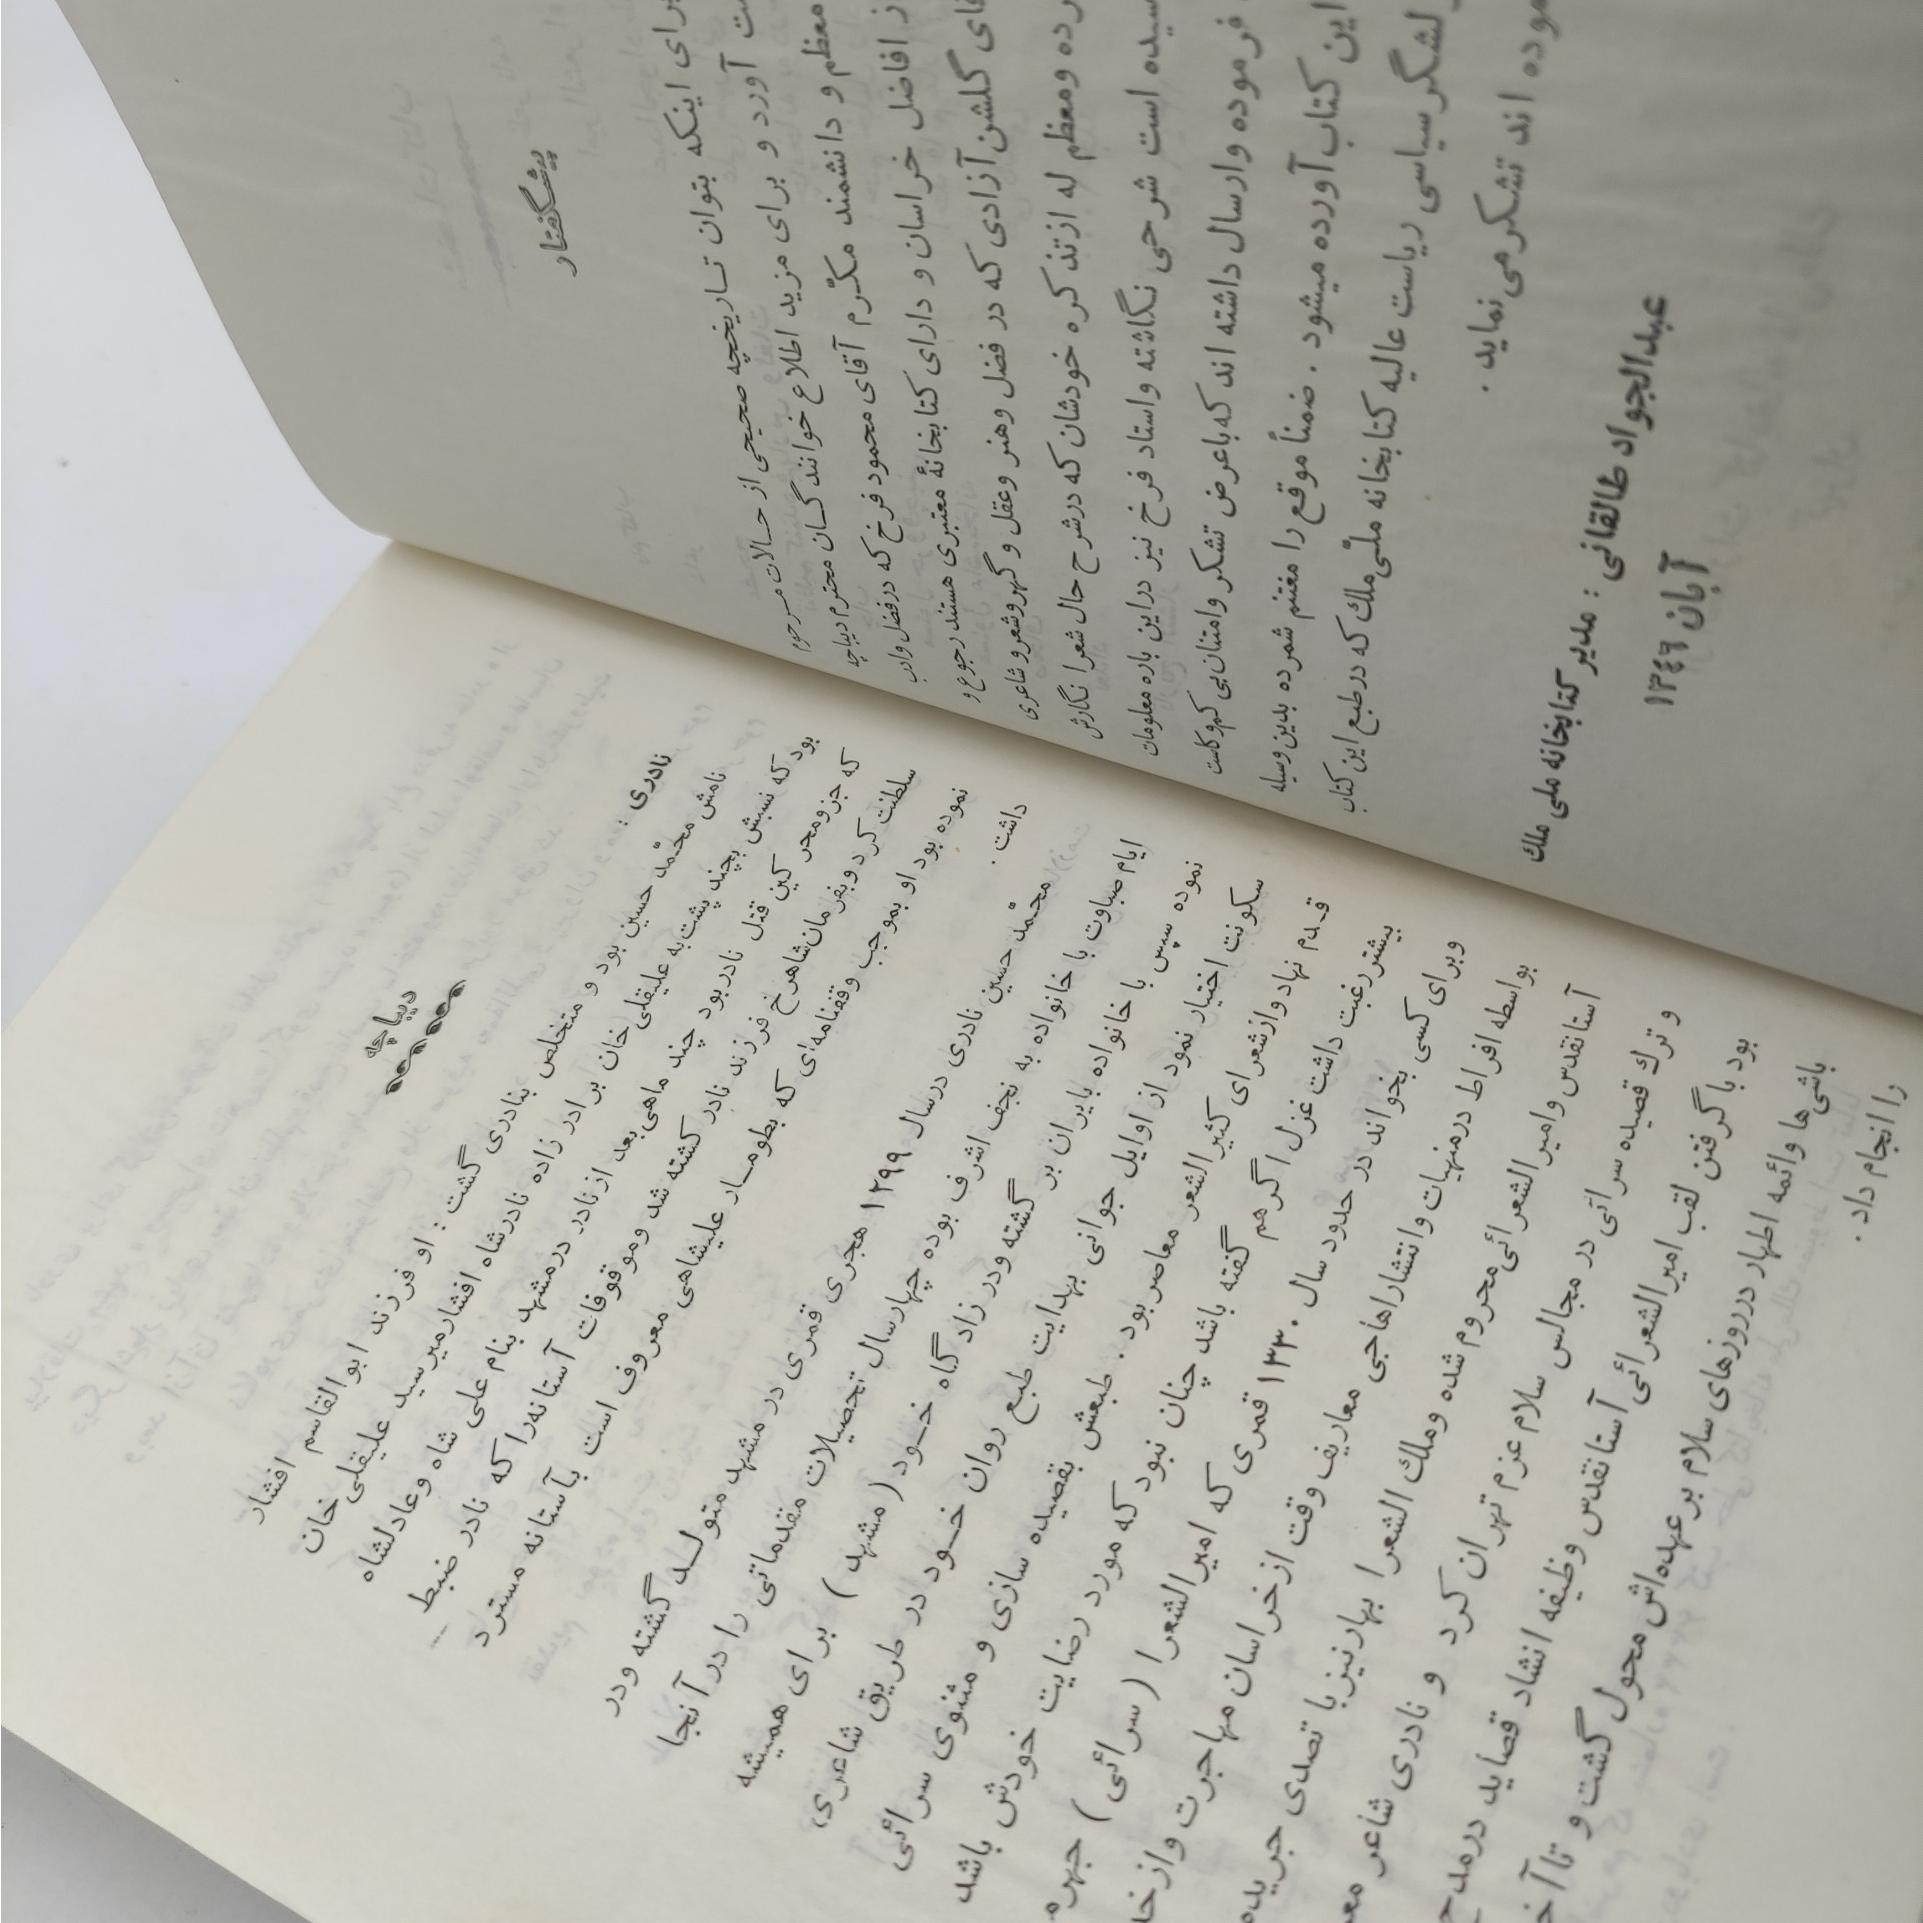 پیشگفتار
برای اینکه بتوان تاریخچه صحیحی از حالات مرحوم
آورد و برای مزید اطلاع خوانندگان محترم دیباچه
معظم و دانشمند مکرّم آقای محمود فرخ که در فضل و ادب
از افاضل خراسان و دارای کتابخانهٔ معتبری هستند رجوع و
گلشن آزادی که در فضل و هنر و عقل و گهر و شعر و شاعری
ومعظم له از تذکره خودشان که در شرح حال شعرا نگارش
است شرحی نگاشته و استاد فرخ نیز در این باره معلومات
فرموده و ارسال داشته اند که با عرض تشکر و امتنان بی کم و کاست
این کتاب آورده میشود . ضمناً موقع را مغتنم شمرده بدین وسیله
لشگر سیاسی ریاست عالیه کتابخانه ملّی ملک که در طبع این کتاب
اند تشکر می نماید .
عبدالجواد طالقانی : مدیر کتابخانه ملی ملک
آبان ۱۳٤٦
دیباچه
نادری :
نامش محمّد حسین بود و متخلص بنادری گشت : او فرزند ابوالقاسم افشار
بود که نسبش بچند پشت به علیقلی خان برادر زاده نادرشاه افشار میرسید علیقلی خان
که جزو محرکین قتل نادر بود چند ماهی بعد از نادر در مشهد بنام علی شاه و عادلشاه
سلطنت کرد و بفرمان شاهرخ فرزند نادر کشته شد و موقوفات آستانه را که نادر ضبط
نموده بود او بموجب وقفنامه‌ای که بطومار علیشاهی معروف است بآستانه مسترد
داشت .
محمّد حسین نادری در سال ۱۲۹۹ هجری قمری در مشهد متولد گشته و در
ایام صباوت با خانواده به نجف اشرف بوده چهار سال تحصیلات مقدماتی را در آنجا
نموده سپس با خانواده بایران بر گشته و در زاد گاه خود ( مشهد ) برای همیشه
سکونت اختیار نمود از اوایل جوانی بهدایت طبع روان خود در طریق شاعری
قدم نهاد و از شعرای کثیرالشعر معاصر بود . طبعش بقصیده سازی و مثنوی سرائی
بیشتر رغبت داشت غزل اگر هم گفته باشد چنان نبود که مورد رضایت خودش باشد
و برای کسی بخواند در حدود سال ۱۳۳۰ قمری که امیرالشعرا ( سرائی )
بواسطه افراط در منهیات و انتشار اهاجی معاریف وقت از خراسان مهاجرت و از
آستانقدس و امیرالشعرائی محروم شده و ملک الشعرا بهار نیز با تصدی جریده
و ترک قصیده سرائی در مجالس سلام عزم تهران کرد و نادری شاعر
بود با گرفتن لقب امیرالشعرائی آستانقدس وظیفه انشاد قصاید در مدح
باشی ها و ائمه اطهار در روزهای سلام بر عهده‌اش محول گشت و تا
را انجام داد .